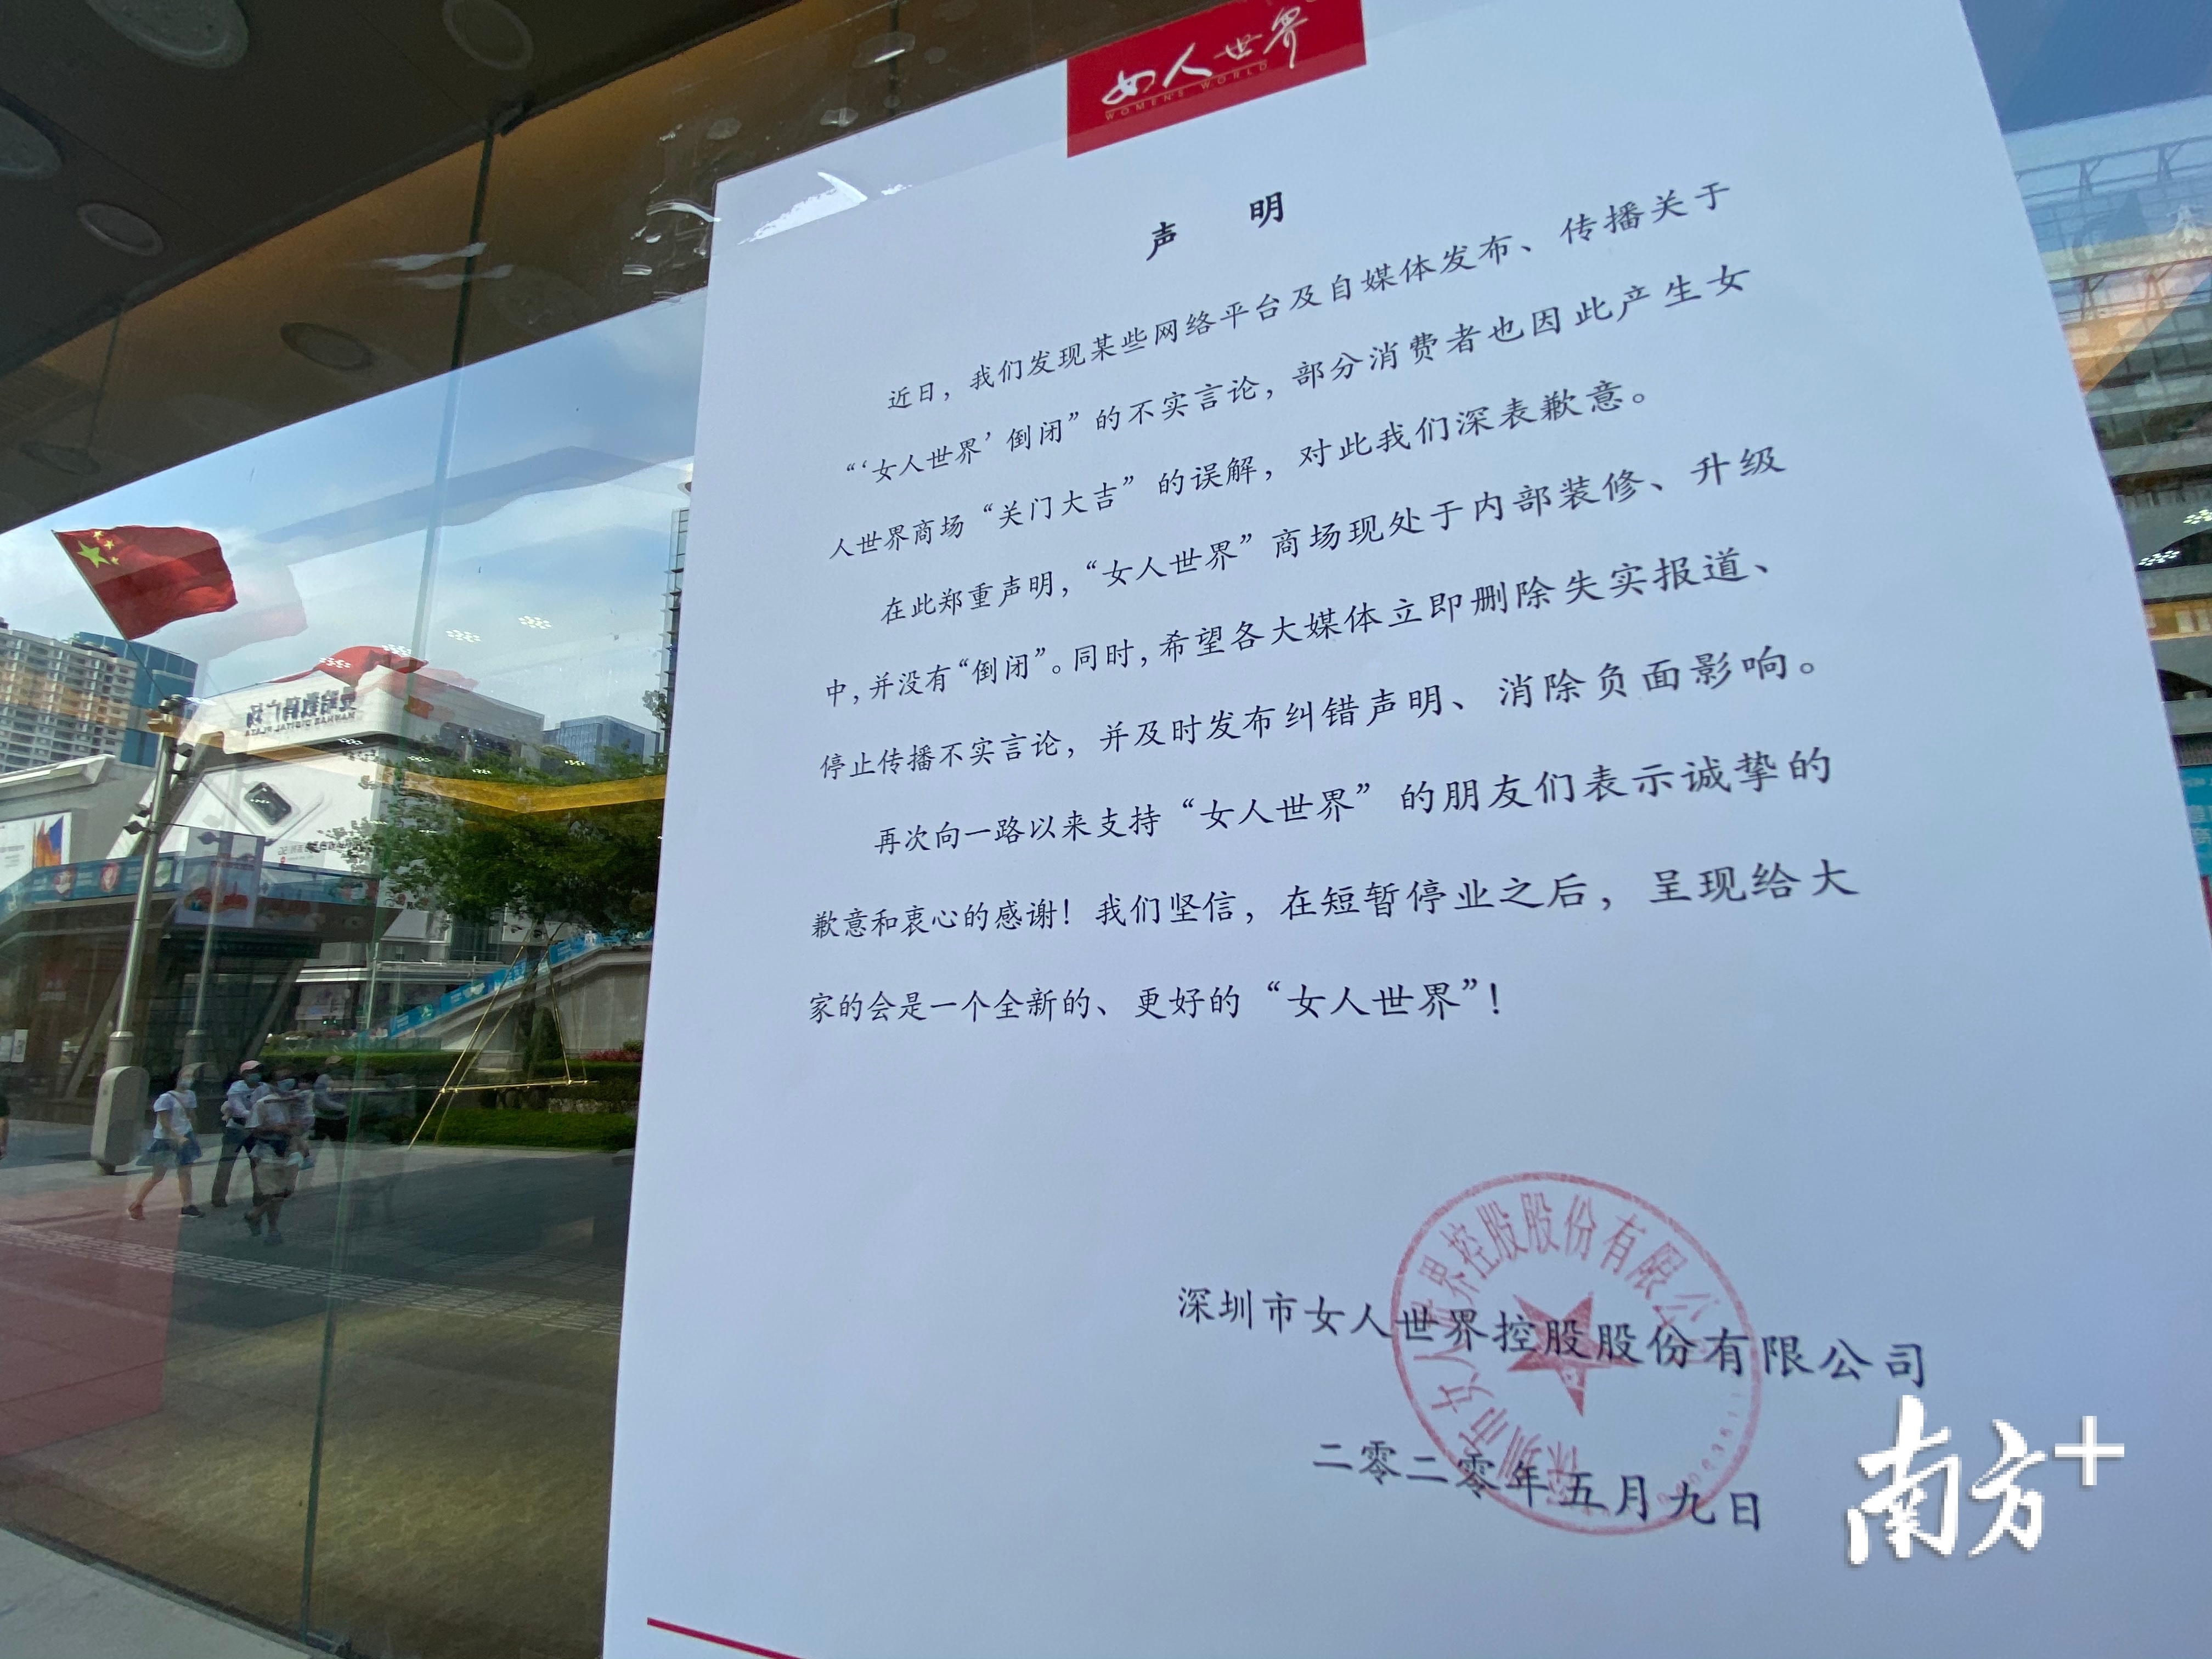 女人世界
WOMEN'S WORLD
声 明
近日，我们发现某些网络平台及自媒体发布、传播关于
“‘女人世界’倒闭”的不实言论，部分消费者也因此产生女
人世界商场“关门大吉”的误解，对此我们深表歉意。
在此郑重声明，“女人世界”商场现处于内部装修、升级
中，并没有“倒闭”。同时，希望各大媒体立即删除失实报道、
停止传播不实言论，并及时发布纠错声明、消除负面影响。
再次向一路以来支持“女人世界”的朋友们表示诚挚的
歉意和衷心的感谢！我们坚信，在短暂停业之后，呈现给大
家的会是一个全新的、更好的“女人世界”！
深圳市女人世界控股股份有限公司
二零二零年五月九日
深圳市女人世界控股股份有限公司
南方+
曼哈数码广场
MANHAR DIGITAL PLAZA